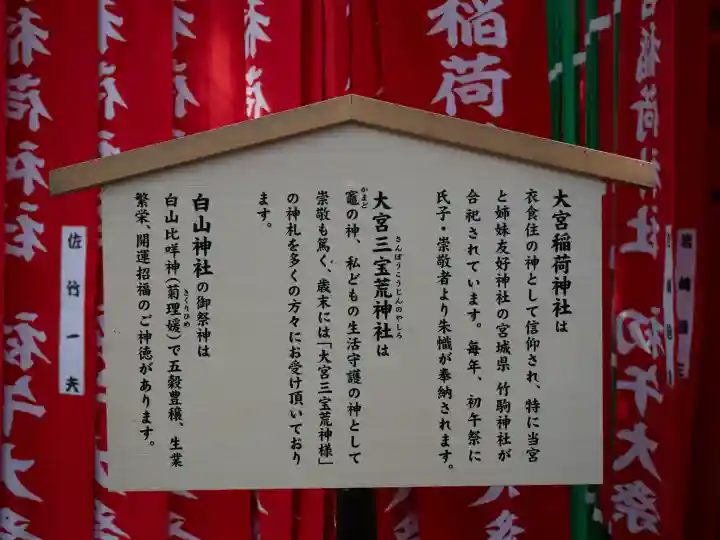 大宮稲荷神社は
衣食住の神として信仰され、特に当宮
と姉妹友好神社の宮城県 竹駒神社が
合祀されています。毎年、初午祭に
氏子・崇敬者より朱幟が奉納されます。
大宮三宝荒神社は
さんぽうこうじんのやしろ
竈の神、私どもの生活守護の神として
かまど
崇敬も篤く、歳末には「大宮三宝荒神様」
の神札を多くの方々にお受け頂いており
ます。
白山神社の御祭神は
白山比咩神(菊理媛)で五穀豊穣、生業
きくりひめ
繁栄、開運招福のご神徳があります。
稲荷
稲荷神社 初午大祭
佐竹一夫